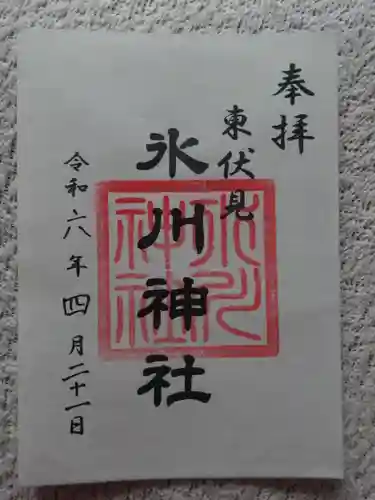 奉拝
東伏見
氷川神社
氷川
神社
令和六年四月二十一日